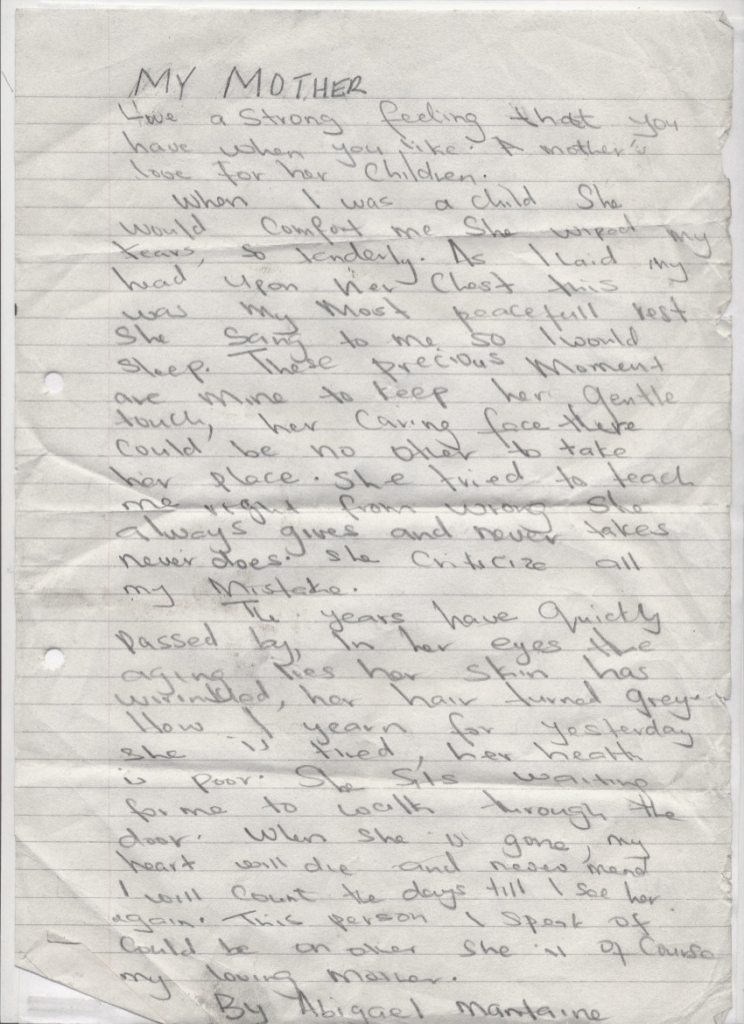 MY MOTHER
Love a strong feeling that you
have when you like. A mother's
love for her Children.
When I was a child She
would Comfort me She wiped my
tears, so tenderly. As I laid my
head upon Her Chest this
was my Most peacefull rest
She Sang to me so I would
Sleep. These precious Moment
are Mine to keep her gentle
touch, her Caring face there
Could be no other to take
her place. She tried to teach
me right from wrong She
always gives and never takes
never does. She Criticize all
my Mistake.
The years have quickly
passed by, In her eyes the
aging lies her Skin has
wirinkled, her hair turned grey.
How I yearn for yesterday
she is tired, her health
is poor. She Sits waiting
for me to walk through the
door. When She is gone, my
heart will die and never mend
I will Count the days till I See her
again. This person I Speak of
Could be on other She is Of Course
my loving Mother.
By Abigael Mantaine